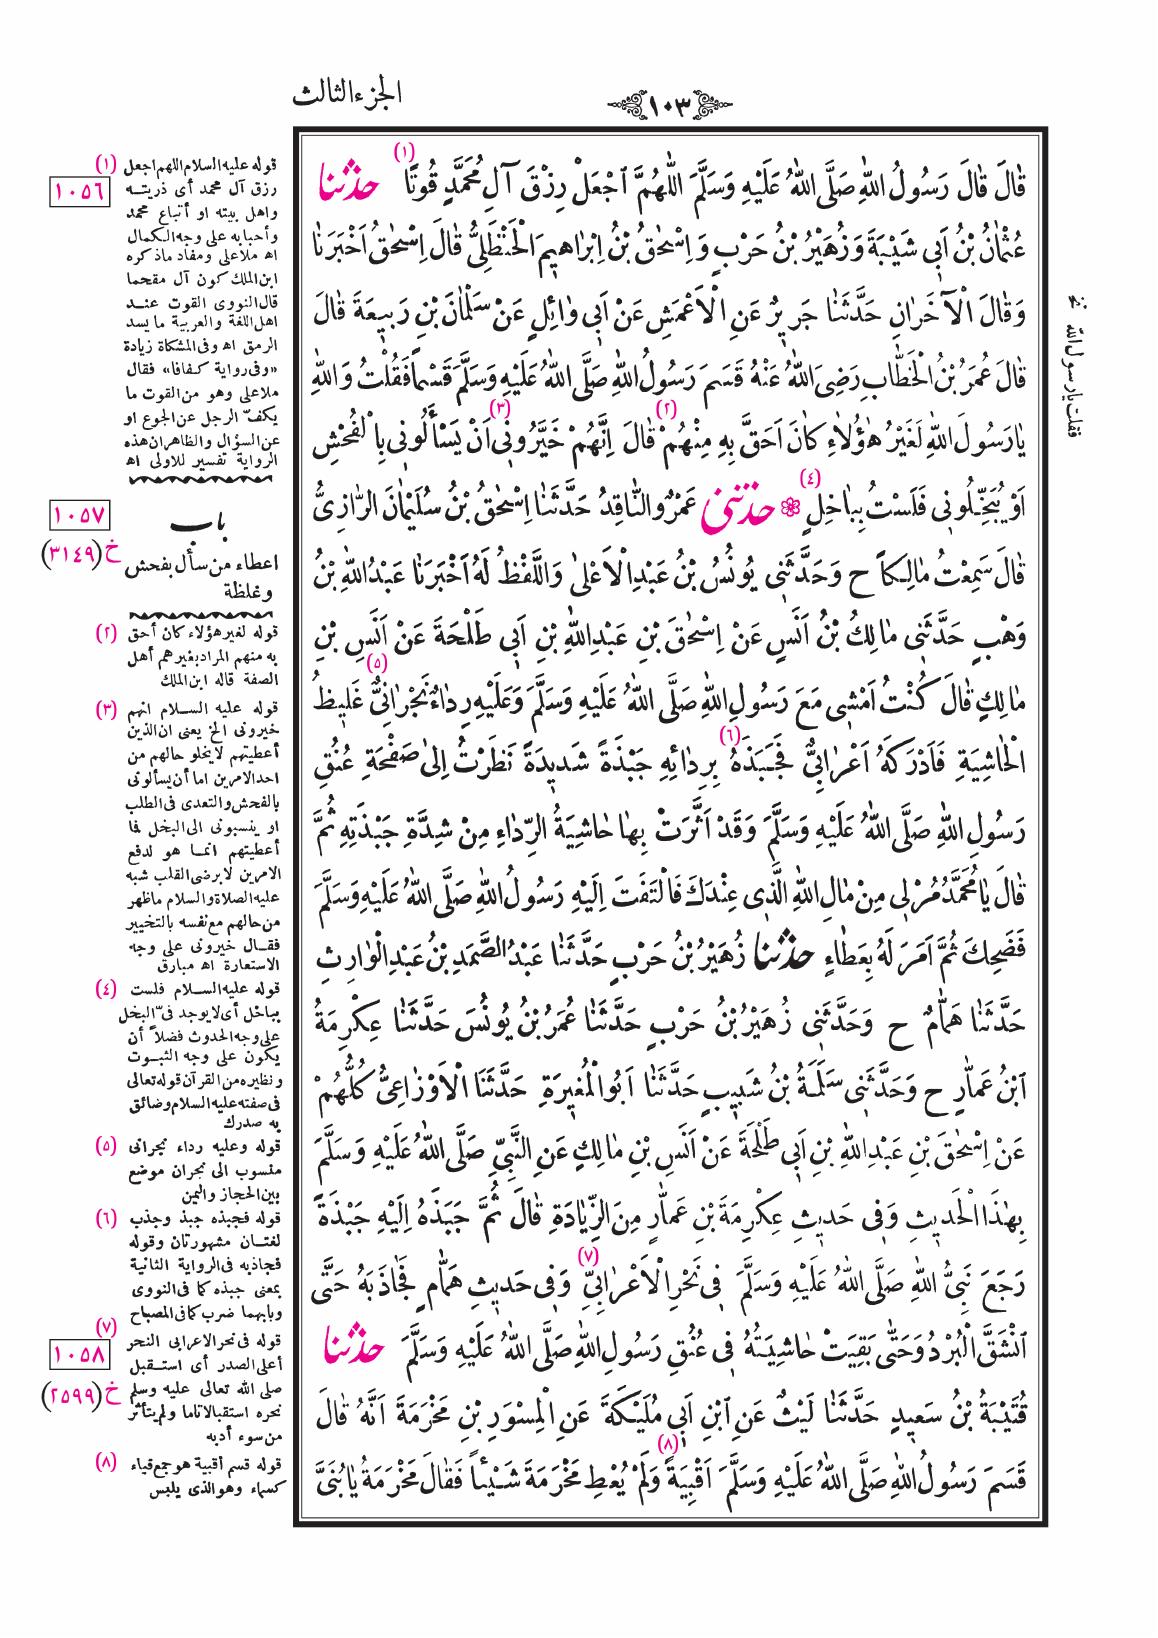 ١٠٣
الجزء الثالث
قَالَ قَالَ رَسُولُ اللهِ صَلَّى اللهُ عَلَيْهِ وَسَلَّمَ اَللّٰهُمَّ اجْعَلْ رِزْقَ آلِ مُحَمَّدٍ قُوتًا (١) حدثنا
عُثْمَانُ بْنُ اَبِي شَيْبَةَ وَزُهَيْرُ بْنُ حَرْبٍ وَاِسْحٰقُ بْنُ اِبْرَاهِيمَ الْحَنْظَلِيُّ قَالَ اِسْحٰقُ اَخْبَرَنَا
وَقَالَ الْآخَرَانِ حَدَّثَنَا جَرِيرٌ عَنِ الْاَعْمَشِ عَنْ اَبِي وَائِلٍ عَنْ سَلْمَانَ بْنِ رَبِيعَةَ قَالَ
قَالَ عُمَرُ بْنُ الْخَطَّابِ رَضِيَ اللهُ عَنْهُ قَسَمَ رَسُولُ اللهِ صَلَّى اللهُ عَلَيْهِ وَسَلَّمَ قَسْمًا فَقُلْتُ وَاللهِ
يَا رَسُولَ اللهِ لَغَيْرُ هٰؤُلَاءِ كَانَ اَحَقَّ بِهِ مِنْهُمْ (٢) قَالَ اِنَّهُمْ خَيَّرُونِي (٣) اَنْ يَسْأَلُونِي بِالْفُحْشِ
اَوْ يُبَخِّلُونِي فَلَسْتُ بِبَاخِلٍ (٤) حدثنى عَمْرٌو النَّاقِدُ حَدَّثَنَا اِسْحٰقُ بْنُ سُلَيْمَانَ الرَّازِيُّ
قَالَ سَمِعْتُ مَالِكاً ح وَحَدَّثَنِي يُونُسُ بْنُ عَبْدِ الْاَعْلٰى وَاللَّفْظُ لَهُ اَخْبَرَنَا عَبْدُ اللهِ بْنُ
وَهْبٍ حَدَّثَنِي مَالِكُ بْنُ اَنَسٍ عَنْ اِسْحٰقَ بْنِ عَبْدِ اللهِ بْنِ اَبِي طَلْحَةَ عَنْ اَنَسِ بْنِ
مَالِكٍ قَالَ كُنْتُ اَمْشِي مَعَ رَسُولِ اللهِ صَلَّى اللهُ عَلَيْهِ وَسَلَّمَ وَعَلَيْهِ رِدَاءٌ نَجْرَانِيٌّ (٥) غَلِيظُ
الْحَاشِيَةِ فَاَدْرَكَهُ اَعْرَابِيٌّ فَجَبَذَهُ (٦) بِرِدَائِهِ جَبْذَةً شَدِيدَةً نَظَرْتُ اِلٰى صَفْحَةِ عُنُقِ
رَسُولِ اللهِ صَلَّى اللهُ عَلَيْهِ وَسَلَّمَ وَقَدْ اَثَّرَتْ بِهَا حَاشِيَةُ الرِّدَاءِ مِنْ شِدَّةِ جَبْذَتِهِ ثُمَّ
قَالَ يَا مُحَمَّدُ مُرْ لِي مِنْ مَالِ اللهِ الَّذِي عِنْدَكَ فَالْتَفَتَ اِلَيْهِ رَسُولُ اللهِ صَلَّى اللهُ عَلَيْهِ وَسَلَّمَ
فَضَحِكَ ثُمَّ اَمَرَ لَهُ بِعَطَاءٍ حدثنا زُهَيْرُ بْنُ حَرْبٍ حَدَّثَنَا عَبْدُ الصَّمَدِ بْنُ عَبْدِ الْوَارِثِ
حَدَّثَنَا هَمَّامٌ ح وَحَدَّثَنِي زُهَيْرُ بْنُ حَرْبٍ حَدَّثَنَا عُمَرُ بْنُ يُونُسَ حَدَّثَنَا عِكْرِمَةُ
ابْنُ عَمَّارٍ ح وَحَدَّثَنِي سَلَمَةُ بْنُ شَبِيبٍ حَدَّثَنَا اَبُو الْمُغِيرَةِ حَدَّثَنَا الْاَوْزَاعِيُّ كُلُّهُمْ
عَنْ اِسْحٰقَ بْنِ عَبْدِ اللهِ بْنِ اَبِي طَلْحَةَ عَنْ اَنَسِ بْنِ مَالِكٍ عَنِ النَّبِيِّ صَلَّى اللهُ عَلَيْهِ وَسَلَّمَ
بِهٰذَا الْحَدِيثِ وَفِي حَدِيثِ عِكْرِمَةَ بْنِ عَمَّارٍ مِنَ الزِّيَادَةِ قَالَ ثُمَّ جَبَذَهُ اِلَيْهِ جَبْذَةً
رَجَعَ نَبِيُّ اللهِ صَلَّى اللهُ عَلَيْهِ وَسَلَّمَ فِي نَحْرِ الْاَعْرَابِيِّ (٧) وَفِي حَدِيثِ هَمَّامٍ فَجَاذَبَهُ حَتَّى
انْشَقَّ الْبُرْدُ وَحَتّٰى بَقِيَتْ حَاشِيَتُهُ فِي عُنُقِ رَسُولِ اللهِ صَلَّى اللهُ عَلَيْهِ وَسَلَّمَ حدثنا
قُتَيْبَةُ بْنُ سَعِيدٍ حَدَّثَنَا لَيْثٌ عَنِ ابْنِ اَبِي مُلَيْكَةَ عَنِ الْمِسْوَرِ بْنِ مَخْرَمَةَ اَنَّهُ قَالَ
قَسَمَ رَسُولُ اللهِ صَلَّى اللهُ عَلَيْهِ وَسَلَّمَ اَقْبِيَةً (٨) وَلَمْ يُعْطِ مَخْرَمَةَ شَيْئاً فَقَالَ مَخْرَمَةُ يَا بُنَيَّ
فقلت يارسول الله
(١) قوله عليه السلام اللهم اجعل
١٠٥٦
رزق آل محمد أى ذريته
واهل بيته او أتباع محمد
وأحبابه على وجه الكمال
اه ملاعلى ومفاد ماذكره
ابن الملك كون آل مقحما
قال النووى القوت عند
اهل اللغة والعربية ما يسد
الرمق اه وفى المشكاة زيادة
«وفى رواية كفافا» فقال
ملاعلى وهو من القوت ما
يكفّ الرجل عن الجوع او
عن السؤال والظاهر ان هذه
الرواية تفسير للاولى اه
١٠٥٧
باب
خ (٣١٤٩)
اعطاء من سأل بفحش
وغلظة
(٢) قوله لغير هؤلاء كان أحق
به منهم المراد بغيرهم أهل
الصفة قاله ابن الملك
(٣) قوله عليه السلام انهم
خيرونى الخ يعنى ان الذين
أعطيتهم لايخلو حالهم من
احد الامرين اما أن يسألونى
بالفحش والتعدى فى الطلب
او ينسبونى الى البخل فما
أعطيتهم انما هو لدفع
الامرين لا برضى القلب شبه
عليه الصلاة والسلام ماظهر
من حالهم مع نفسه بالتخيير
فقال خيرونى على وجه
الاستعارة اه مبارق
(٤) قوله عليه السلام فلست
بباخل أى لا يوجد فىّ البخل
على وجه الحدوث فضلاً أن
يكون على وجه الثبوت
ونظيره من القرآن قوله تعالى
فى صفته عليه السلام وضائق
به صدرك
(٥) قوله وعليه رداء نجرانى
منسوب الى نجران موضع
بين الحجاز واليمن
(٦) قوله فجبذه جبذ وجذب
لغتان مشهورتان وقوله
فجاذبه فى الرواية الثانية
بمعنى جبذه كما فى النووى
وبابهما ضرب كما فى المصباح
(٧) قوله فى نحر الاعرابى النحر
١٠٥٨
أعلى الصدر أى استقبل
صلى الله تعالى عليه وسلم
خ (٢٥٩٩)
نحره استقبالا تاما ولم يتأثر
من سوء أدبه
(٨) قوله قسم أقبية هو جمع قباء
كسماء وهو الذى يلبس